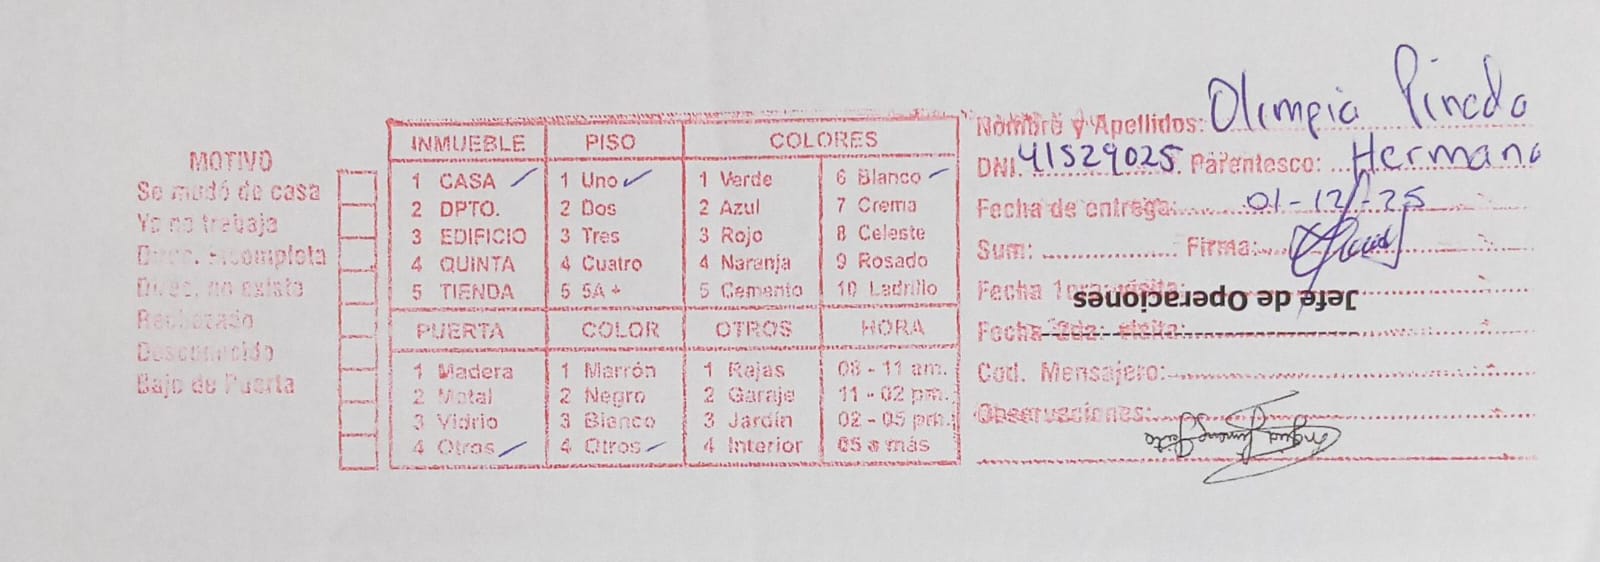 MOTIVO
Se mudó de casa
Ya no trabaja
Direc. Incompleta
Direc. no existe
Rechazado
Desconocido
Bajo de Puerta
INMUEBLE PISO COLORES
1 CASA ✓ 1 Uno ✓ 1 Verde 6 Blanco ✓
2 DPTO. 2 Dos 2 Azul 7 Crema
3 EDIFICIO 3 Tres 3 Rojo 8 Celeste
4 QUINTA 4 Cuatro 4 Naranja 9 Rosado
5 TIENDA 5 5A + 5 Cemento 10 Ladrillo
PUERTA COLOR OTROS HORA
1 Madera 1 Marrón 1 Rejas 08 - 11 am.
2 Metal 2 Negro 2 Garaje 11 - 02 pm.
3 Vidrio 3 Blanco 3 Jardín 02 - 05 pm.
4 Otros ✓ 4 Otros ✓ 4 Interior 05 a más
Nombre y Apellidos: Olimpia Pineda
DNI. 41529025 Parentesco: Hermana
Fecha de entrega: 01-12-25
Sum: Firma:
Fecha 1era: visita:
Jefe de Operaciones
Fecha 2da: visita:
Cod. Mensajero:
Observaciones: